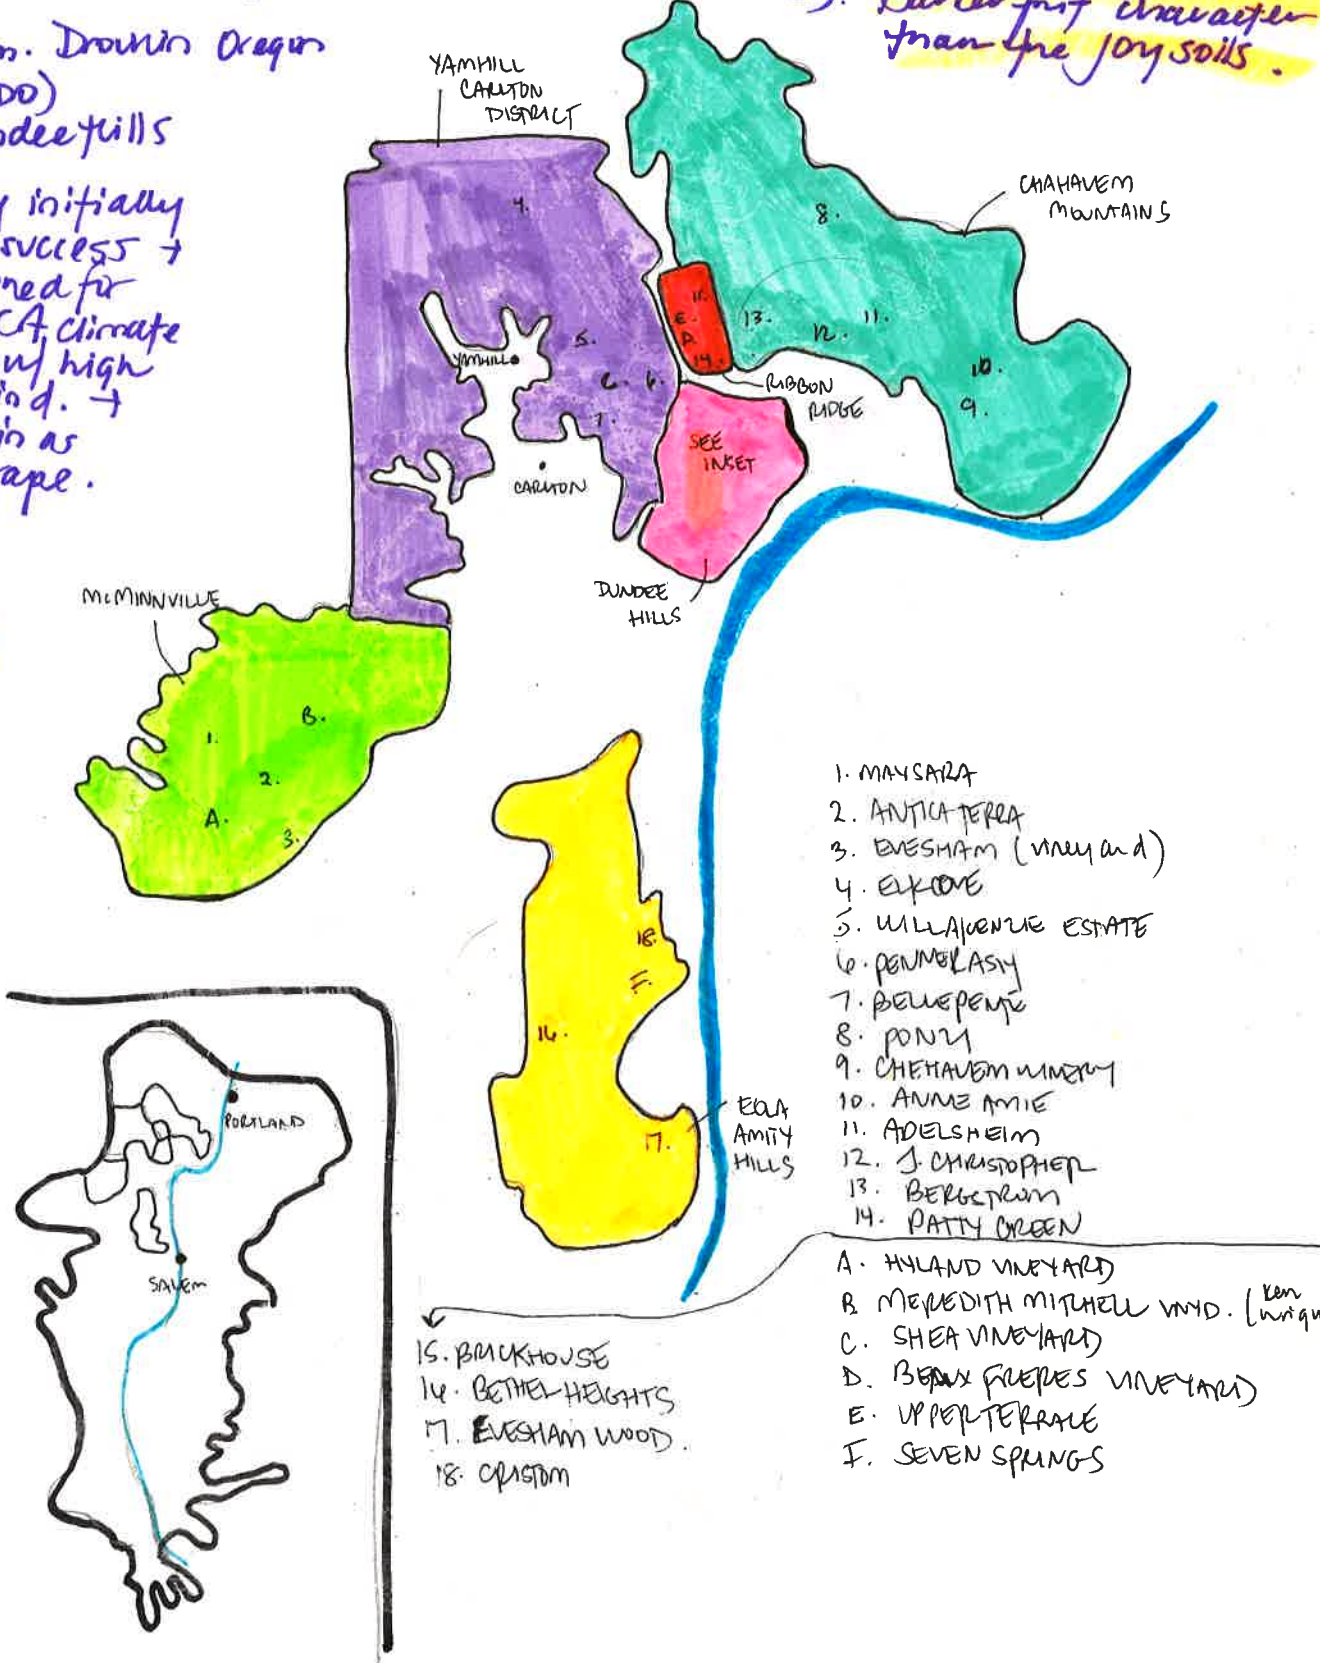 m. Drouhin Oregon
DDO)
ndee Hills
y initially
success +
ned for
CA climate
w/ high
ind. +
in as
rape.
5. character
than the jory soils.
YAMHILL
CARLTON
DISTRICT
CHAHAVEM
MOUNTAINS
4.
8.
11.
E.
D.
14.
13.
12.
11.
10.
9.
5.
YAMHILL
C. 6.
7.
RIBBON
RIDGE
SEE
INSET
CARLTON
DUNDEE
HILLS
MCMINNVILLE
1.
B.
2.
A.
3.
18.
F.
16.
17.
EOLA
AMITY
HILLS
1. MAYSARA
2. ANTICA TERRA
3. EVESHAM (vineyard)
4. ELK COVE
5. WILLAKENZIE ESTATE
6. PENNERASH
7. BELLEPENTE
8. PONZI
9. CHEHAVEM WINERY
10. ANNE AMIE
11. ADELSHEIM
12. J. CHRISTOPHER
13. BERGSTROM
14. PATTY GREEN
A. HYLAND VINEYARD
B. MEREDITH MITCHELL VNYD. (Ken
C. SHEA VINEYARD
D. BEAUX FRERES VINEYARD
E. UPPER TERRACE
F. SEVEN SPRINGS
15. BRICKHOUSE
16. BETHEL HEIGHTS
17. EVESHAM WOOD.
18. CRISTOM
PORTLAND
SALEM